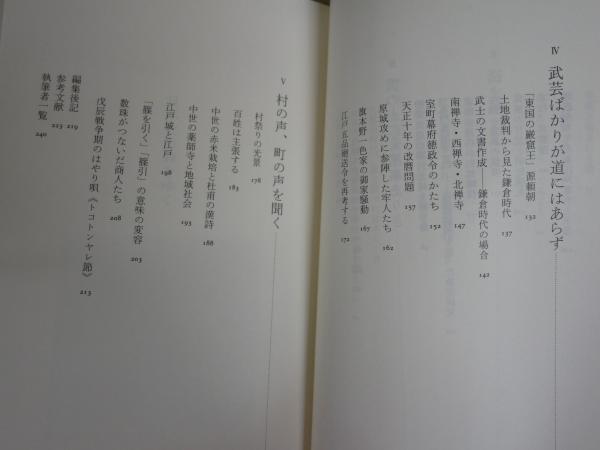 IV 武芸ばかりが道にはあらず
「東国の巌窟王」源頼朝 132
土地裁判から見た鎌倉時代 137
武士の文書作成——鎌倉時代の場合 142
南禅寺・西禅寺・北禅寺 147
室町幕府徳政令のかたち 152
天正十年の改暦問題 157
原城攻めに参陣した牢人たち 162
旗本野一色家の御家騒動 167
江戸五品廻送令を再考する 172
V 村の声、町の声を聞く
村祭りの光景 178
百姓は主張する 183
中世の赤米栽培と杜甫の漢詩 188
中世の薬師寺と地域社会 193
江戸城と江戸 198
「腰を引く」「腰引」の意味の変容 203
数珠がつないだ商人たち 208
戊辰戦争期のはやり唄《トコトンヤレ節》 213
編集後記 219
参考文献 223
執筆者一覧 240